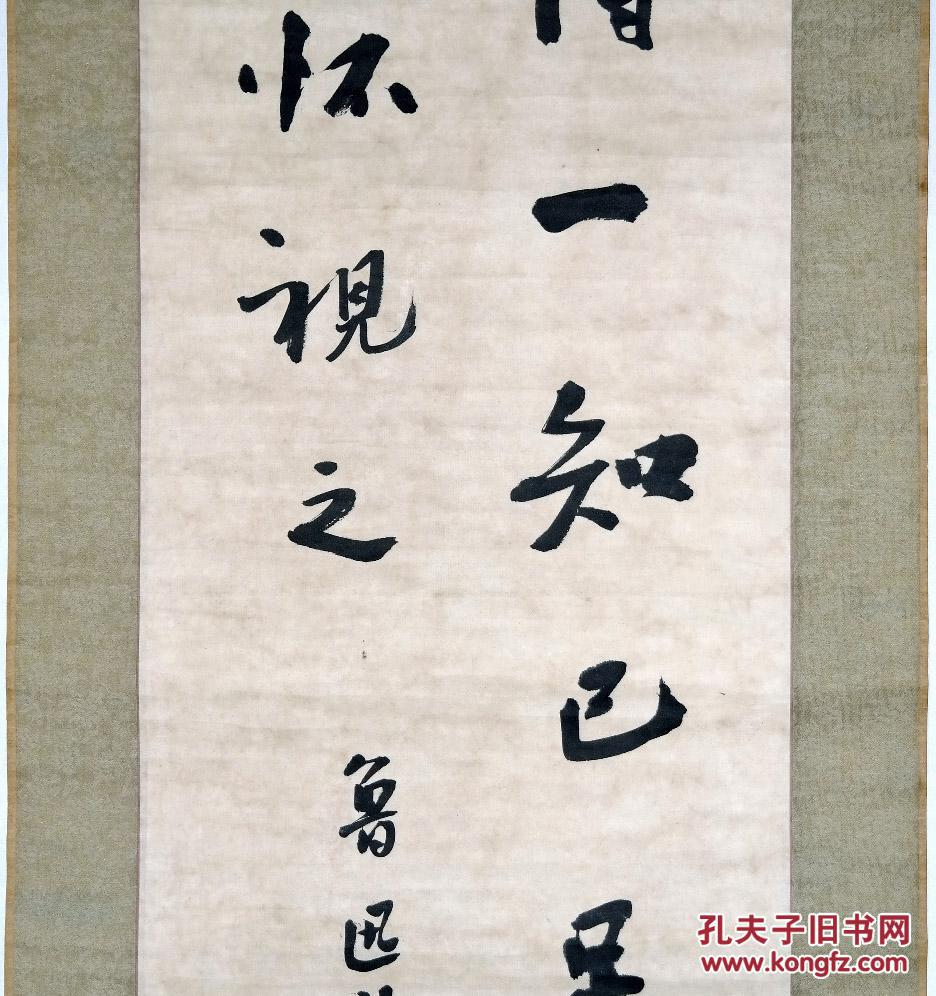 一知己足
怀視之
魯迅
孔夫子旧书网
www.kongfz.com